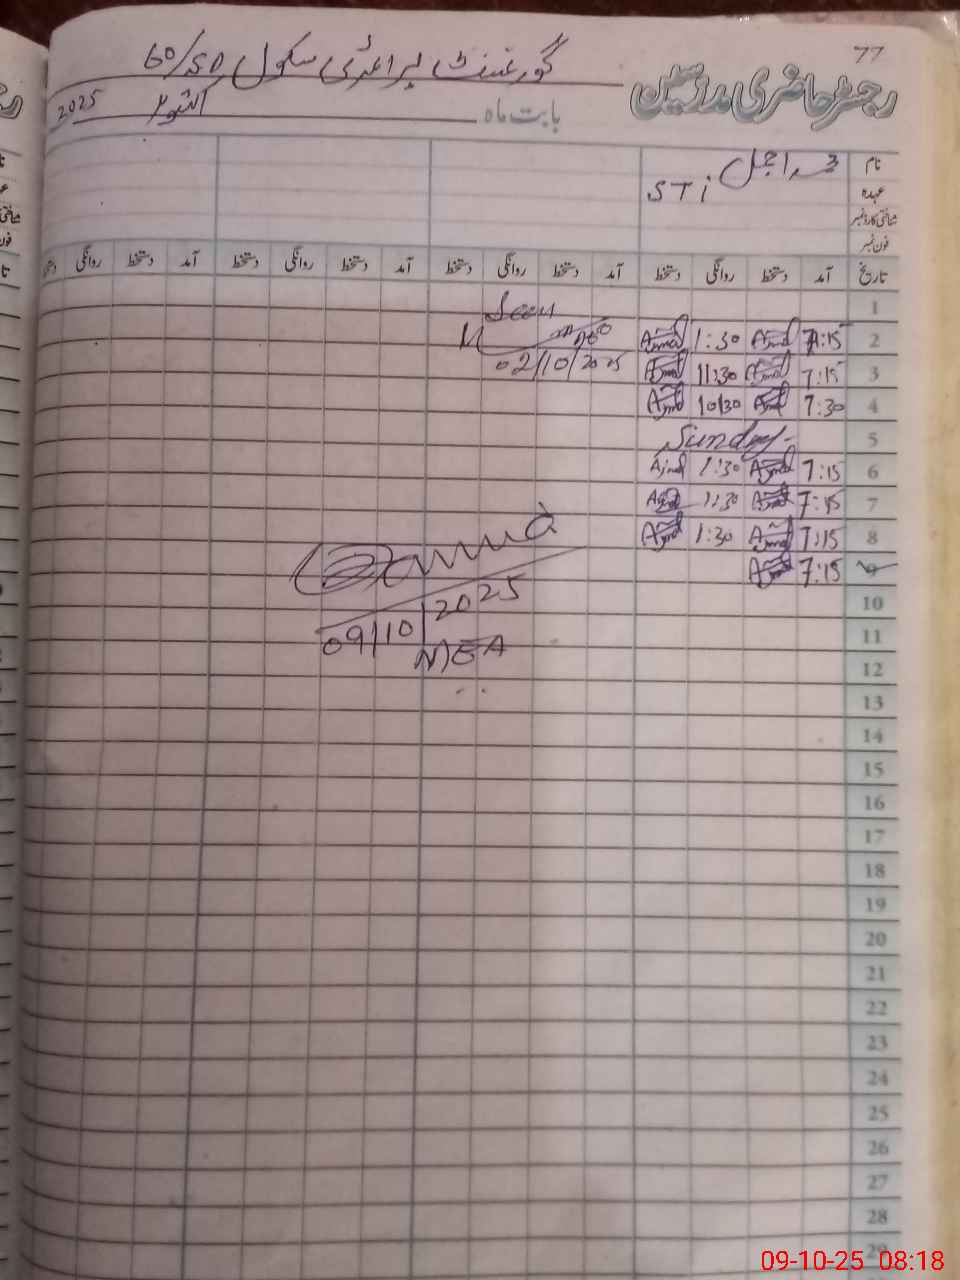 77
گورنمنٹ پرائمری سکول 60/5D
رجسٹر حاضری مدرسین
بابت ماہ اکتوبر 2025
نام محمد اجمل
عہدہ STi
شناختی کارڈ نمبر
فون نمبر
تاریخ آمد دستخط روانگی دستخط آمد دستخط روانگی دستخط آمد دستخط روانگی دستخط آمد دستخط روانگی دستخط
1 Seen
2 7:15 Ajmal 1:30 Ajmal
02/10/2025
3 7:15 Ajmal 11:30 Ajmal
4 7:30 Ajmal 10:30 Ajmal
5 Sunday
6 7:15 Ajmal 1:30 Ajmal
7 7:15 Ajmal 1:30 Ajmal
8 7:15 Ajmal 1:30 Ajmal
9 7:15 Ajmal
10
09/10/2025
11
MEA
12
13
14
15
16
17
18
19
20
21
22
23
24
25
26
27
28
29
09-10-25 08:18